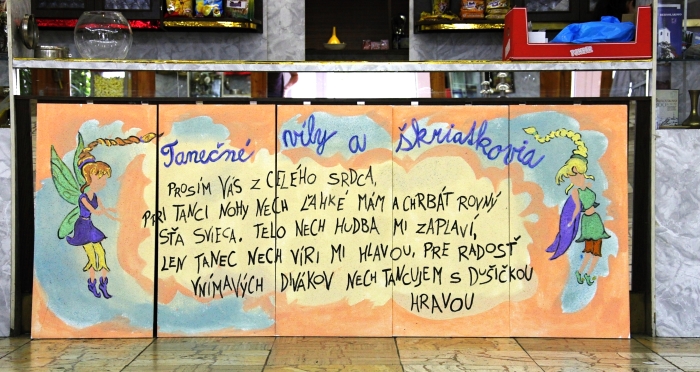 Tanečné víly a škriatkovia
PROSÍM VÁS Z CELÉHO SRDCA,
PRI TANCI NOHY NECH ĽAHKÉ MÁM A CHRBÁT ROVNÝ
SŤA SVIECA. TELO NECH HUDBA MI ZAPLAVÍ,
LEN TANEC NECH VÍRI MI HLAVOU, PRE RADOSŤ
VNÍMAVÝCH DIVÁKOV NECH TANCUJEM S DUŠIČKOU
HRAVOU